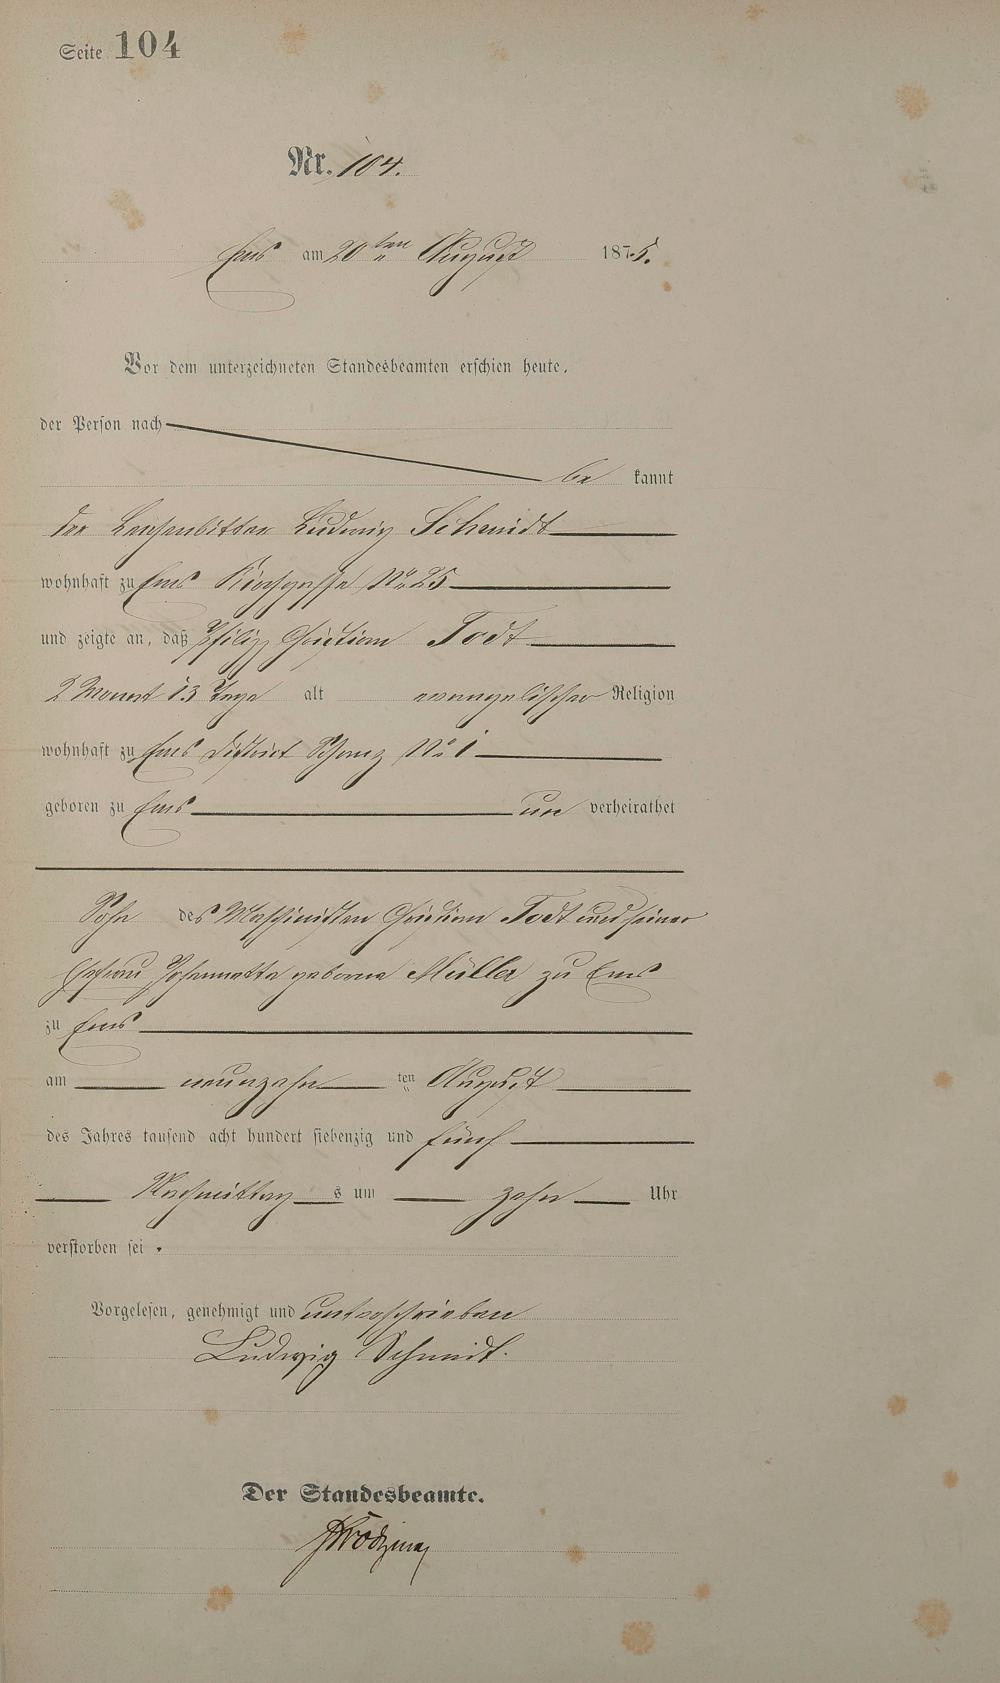 Seite 104
Nr. 104.
Ems am 20ten August 1875.
Vor dem unterzeichneten Standesbeamten erschien heute,
der Person nach
be kannt
der Leichenbitter Ludwig Schmidt
wohnhaft zu Ems Kirchgasse No 25
und zeigte an, daß Philipp Christian Todt
2 Monat 13 Tage alt evangelischer Religion
wohnhaft zu Ems District Schanz No 1
geboren zu Ems un verheirathet
Sohn des Maschinisten Christian Todt und seiner
Ehefrau Johannetta geborne Müller zu Ems
zu Ems
am neunzehn ten August
des Jahres tausend acht hundert siebenzig und fünf
Nachmittag s um zehn Uhr
verstorben sei.
Vorgelesen, genehmigt und unterschrieben
Ludwig Schmidt.
Der Standesbeamte.